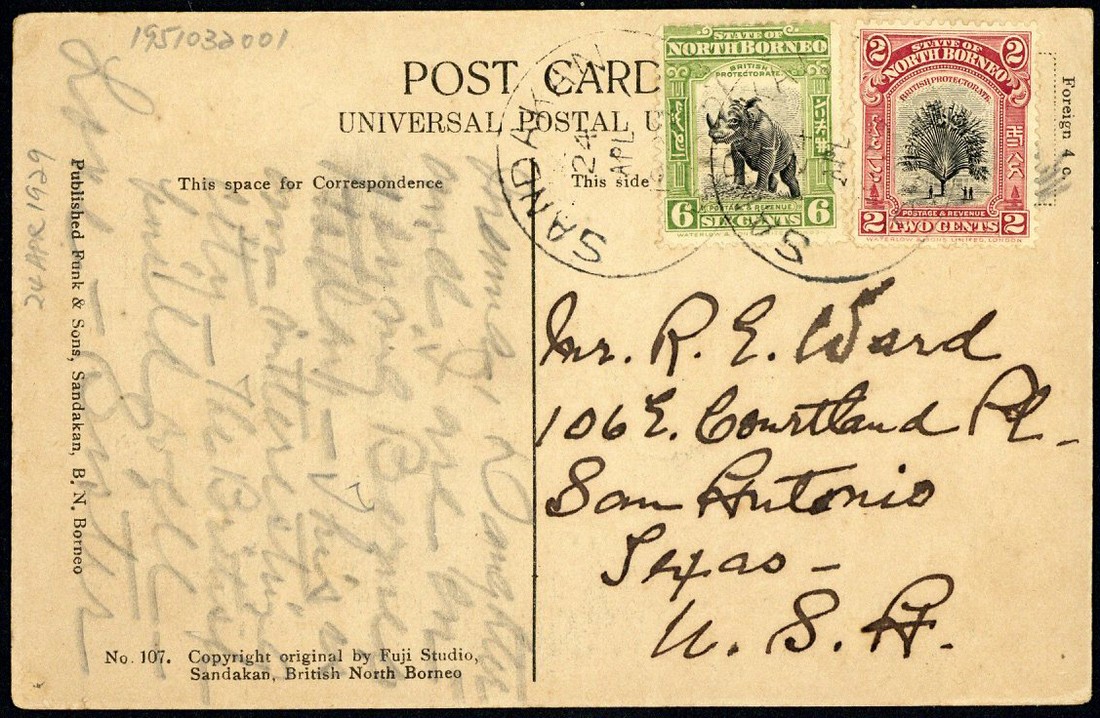 1951032001
POST CARD
UNIVERSAL POSTAL U
This space for Correspondence
This side
SANDAKAN
24
APL
STATE OF
NORTH BORNEO
BRITISH
PROTECTORATE
POSTAGE & REVENUE
6 SIX CENTS 6
2 STATE OF 2
NORTH BORNEO
BRITISH PROTECTORATE
POSTAGE & REVENUE
2 TWO CENTS 2
WATERLOW & SONS LIMITED, LONDON
Foreign 4 c.
24 APR 1929
Published Funk & Sons, Sandakan, B. N. Borneo
and I are on
Borneo
This is
an interesting
city - The British
Mr. R. E. Ward
106 E. Courtland Pl.
San Antonio
Texas -
U. S. A.
No. 107. Copyright original by Fuji Studio,
Sandakan, British North Borneo